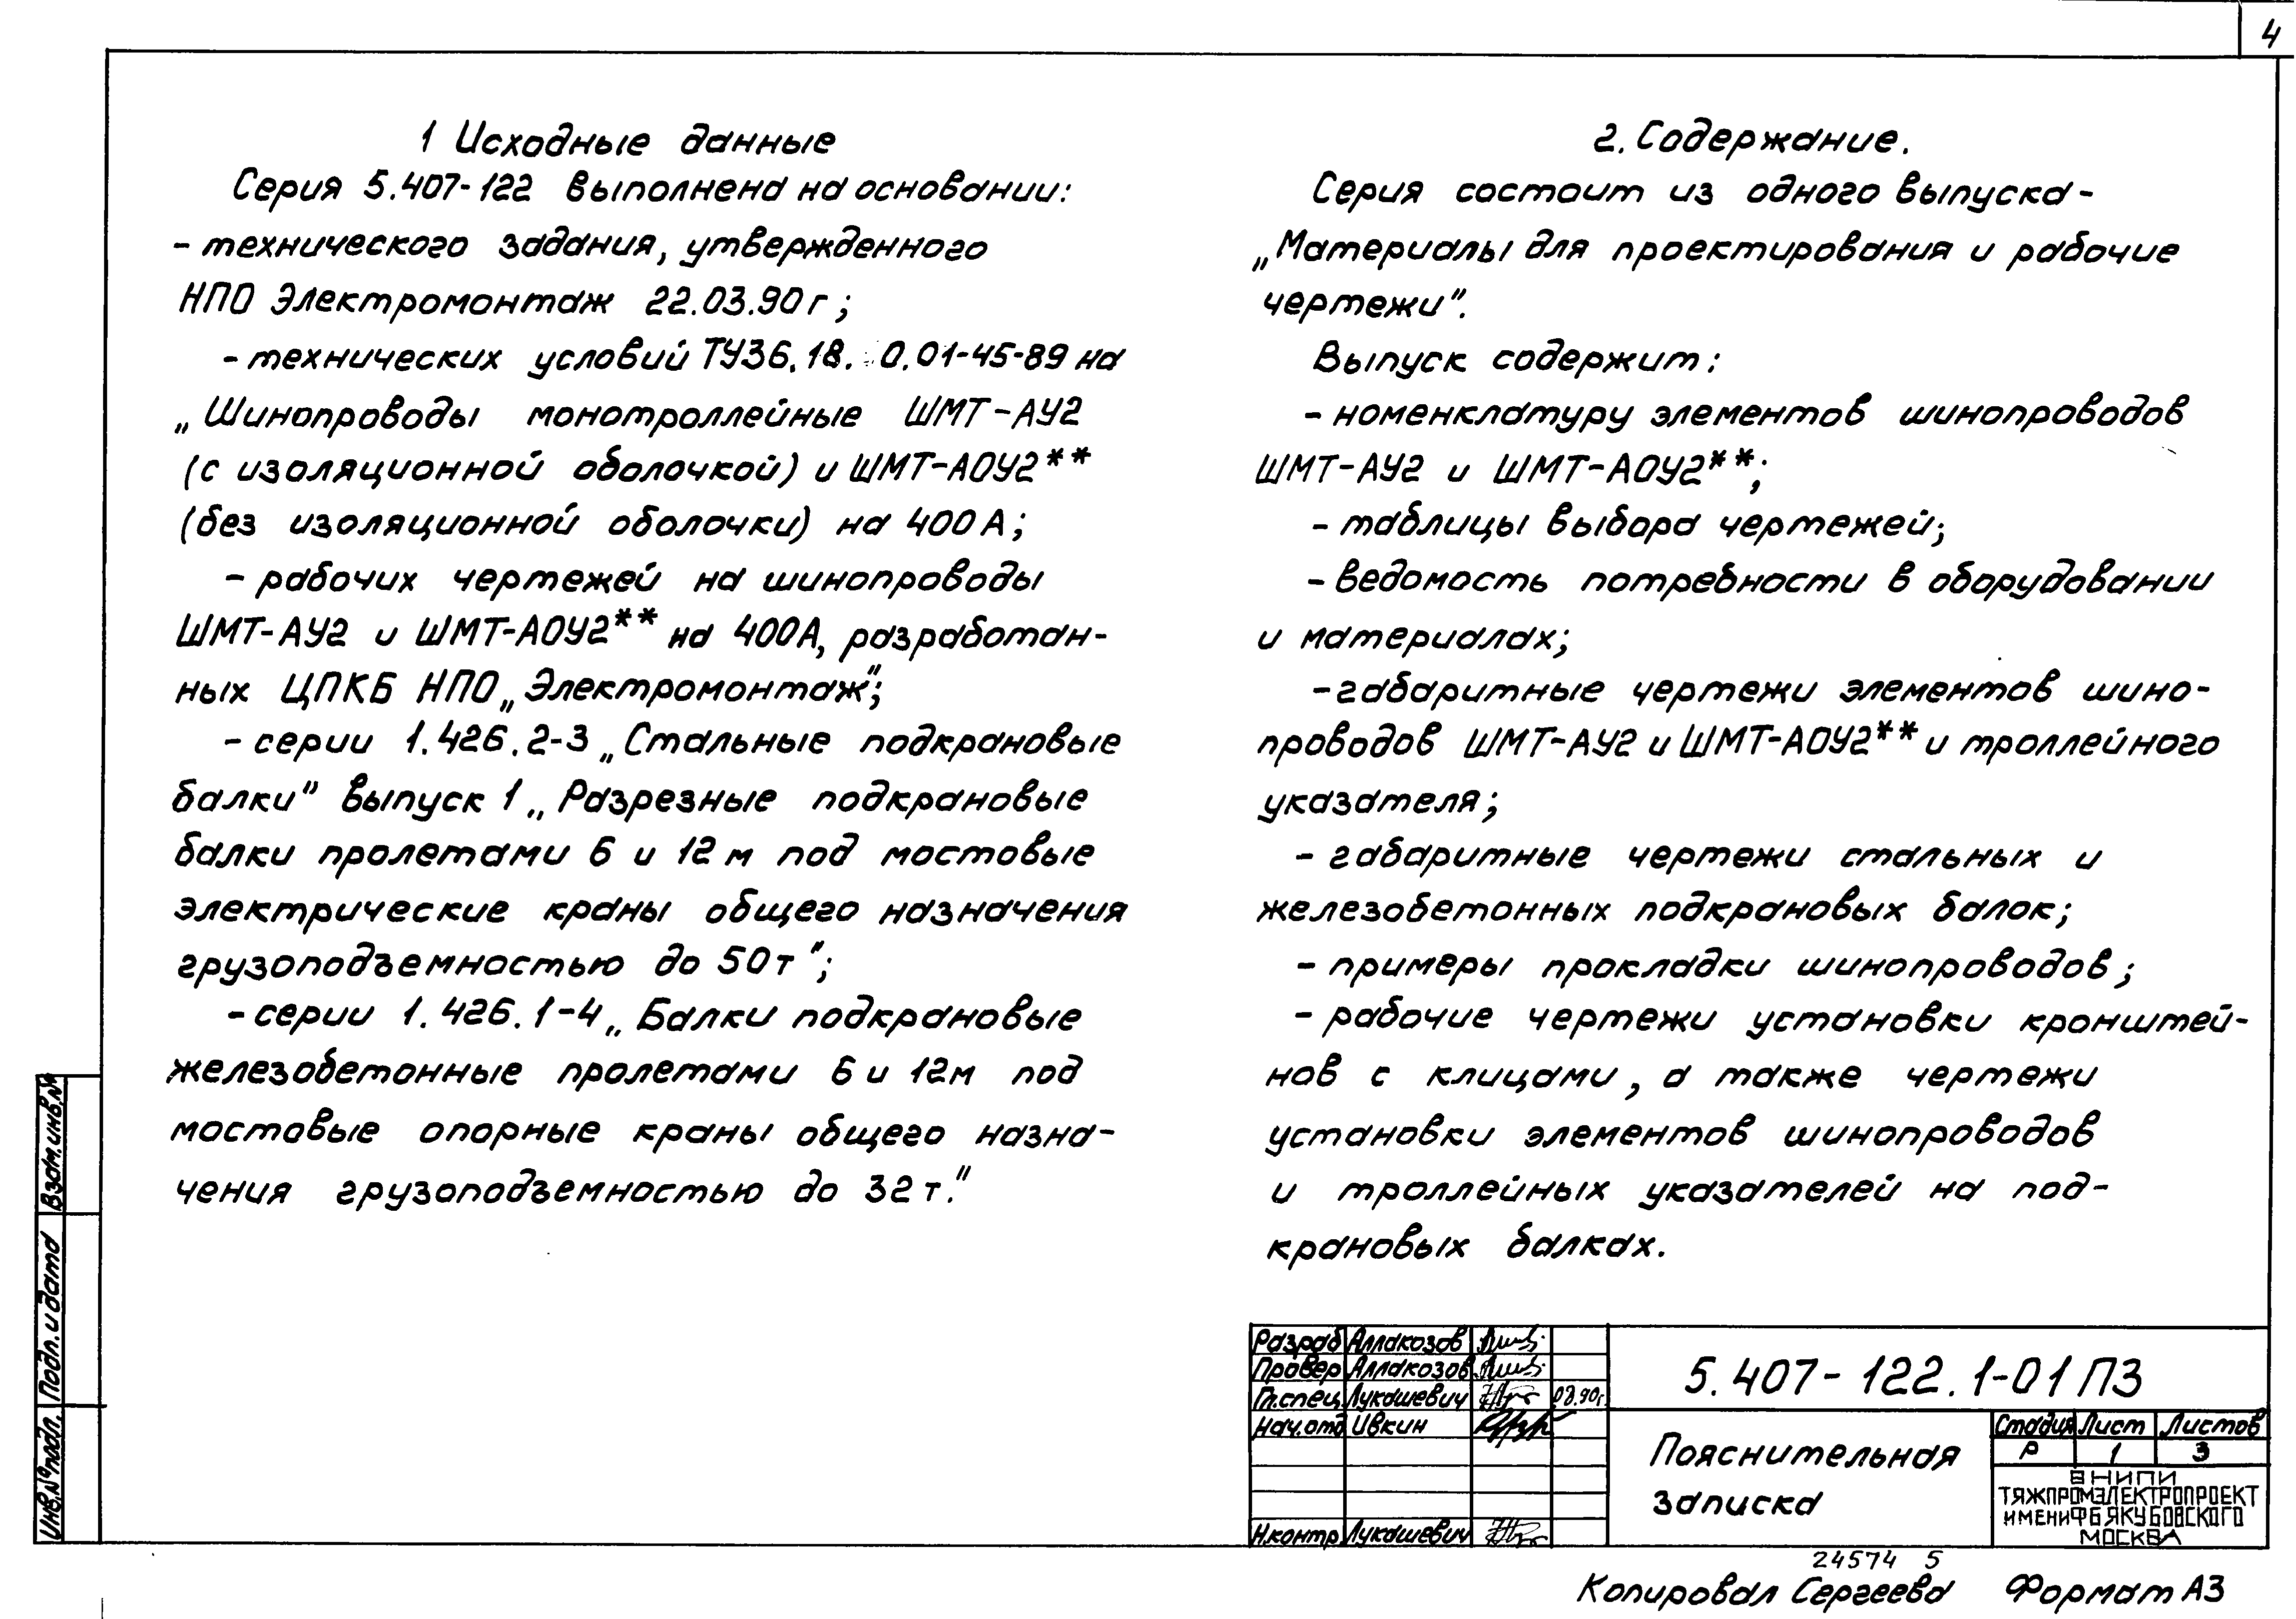 4
1 Исходные данные
Серия 5.407-122 выполнена на основании:
- технического задания, утвержденного
НПО Электромонтаж 22.03.90 г;
- технических условий ТУ36.18. 0.01-45-89 на
„Шинопроводы монотроллейные ШМТ-АУ2
(с изоляционной оболочкой) и ШМТ-АОУ2**
(без изоляционной оболочки) на 400 А;
- рабочих чертежей на шинопроводы
ШМТ-АУ2 и ШМТ-АОУ2** на 400А, разработан-
ных ЦПКБ НПО „Электромонтаж";
- серии 1.426.2-3 „Стальные подкрановые
балки" выпуск 1 „Разрезные подкрановые
балки пролетами 6 и 12 м под мостовые
электрические краны общего назначения
грузоподъемностью до 50 т";
- серии 1.426.1-4 „Балки подкрановые
железобетонные пролетами 6 и 12м под
мостовые опорные краны общего назна-
чения грузоподъемностью до 32 т."
2. Содержание.
Серия состоит из одного выпуска -
„Материалы для проектирования и рабочие
чертежи".
Выпуск содержит:
- номенклатуру элементов шинопроводов
ШМТ-АУ2 и ШМТ-АОУ2**;
- таблицы выбора чертежей;
- ведомость потребности в оборудовании
и материалах;
- габаритные чертежи элементов шино-
проводов ШМТ-АУ2 и ШМТ-АОУ2** и троллейного
указателя;
- габаритные чертежи стальных и
железобетонных подкрановых балок;
- примеры прокладки шинопроводов;
- рабочие чертежи установки кронштей-
нов с клицами, а также чертежи
установки элементов шинопроводов
и троллейных указателей на под-
крановых балках.
Взам.инв.№
Подп. и дата
Инв.№ подл.
Разраб Аллакозов
Провер Аллакозов
Гл.спец Лукашевич 08.90г.
Нач.отд Ивкин
Н.контр Лукашевич
5.407-122.1-01 ПЗ
Пояснительная
записка
Стадия Лист Листов
Р 1 3
ВНИПИ
ТЯЖПРОМЭЛЕКТРОПРОЕКТ
ИМЕНИ Ф Б ЯКУБОВСКОГО
МОСКВА
24574 5
Копировал Сергеева Формат А3